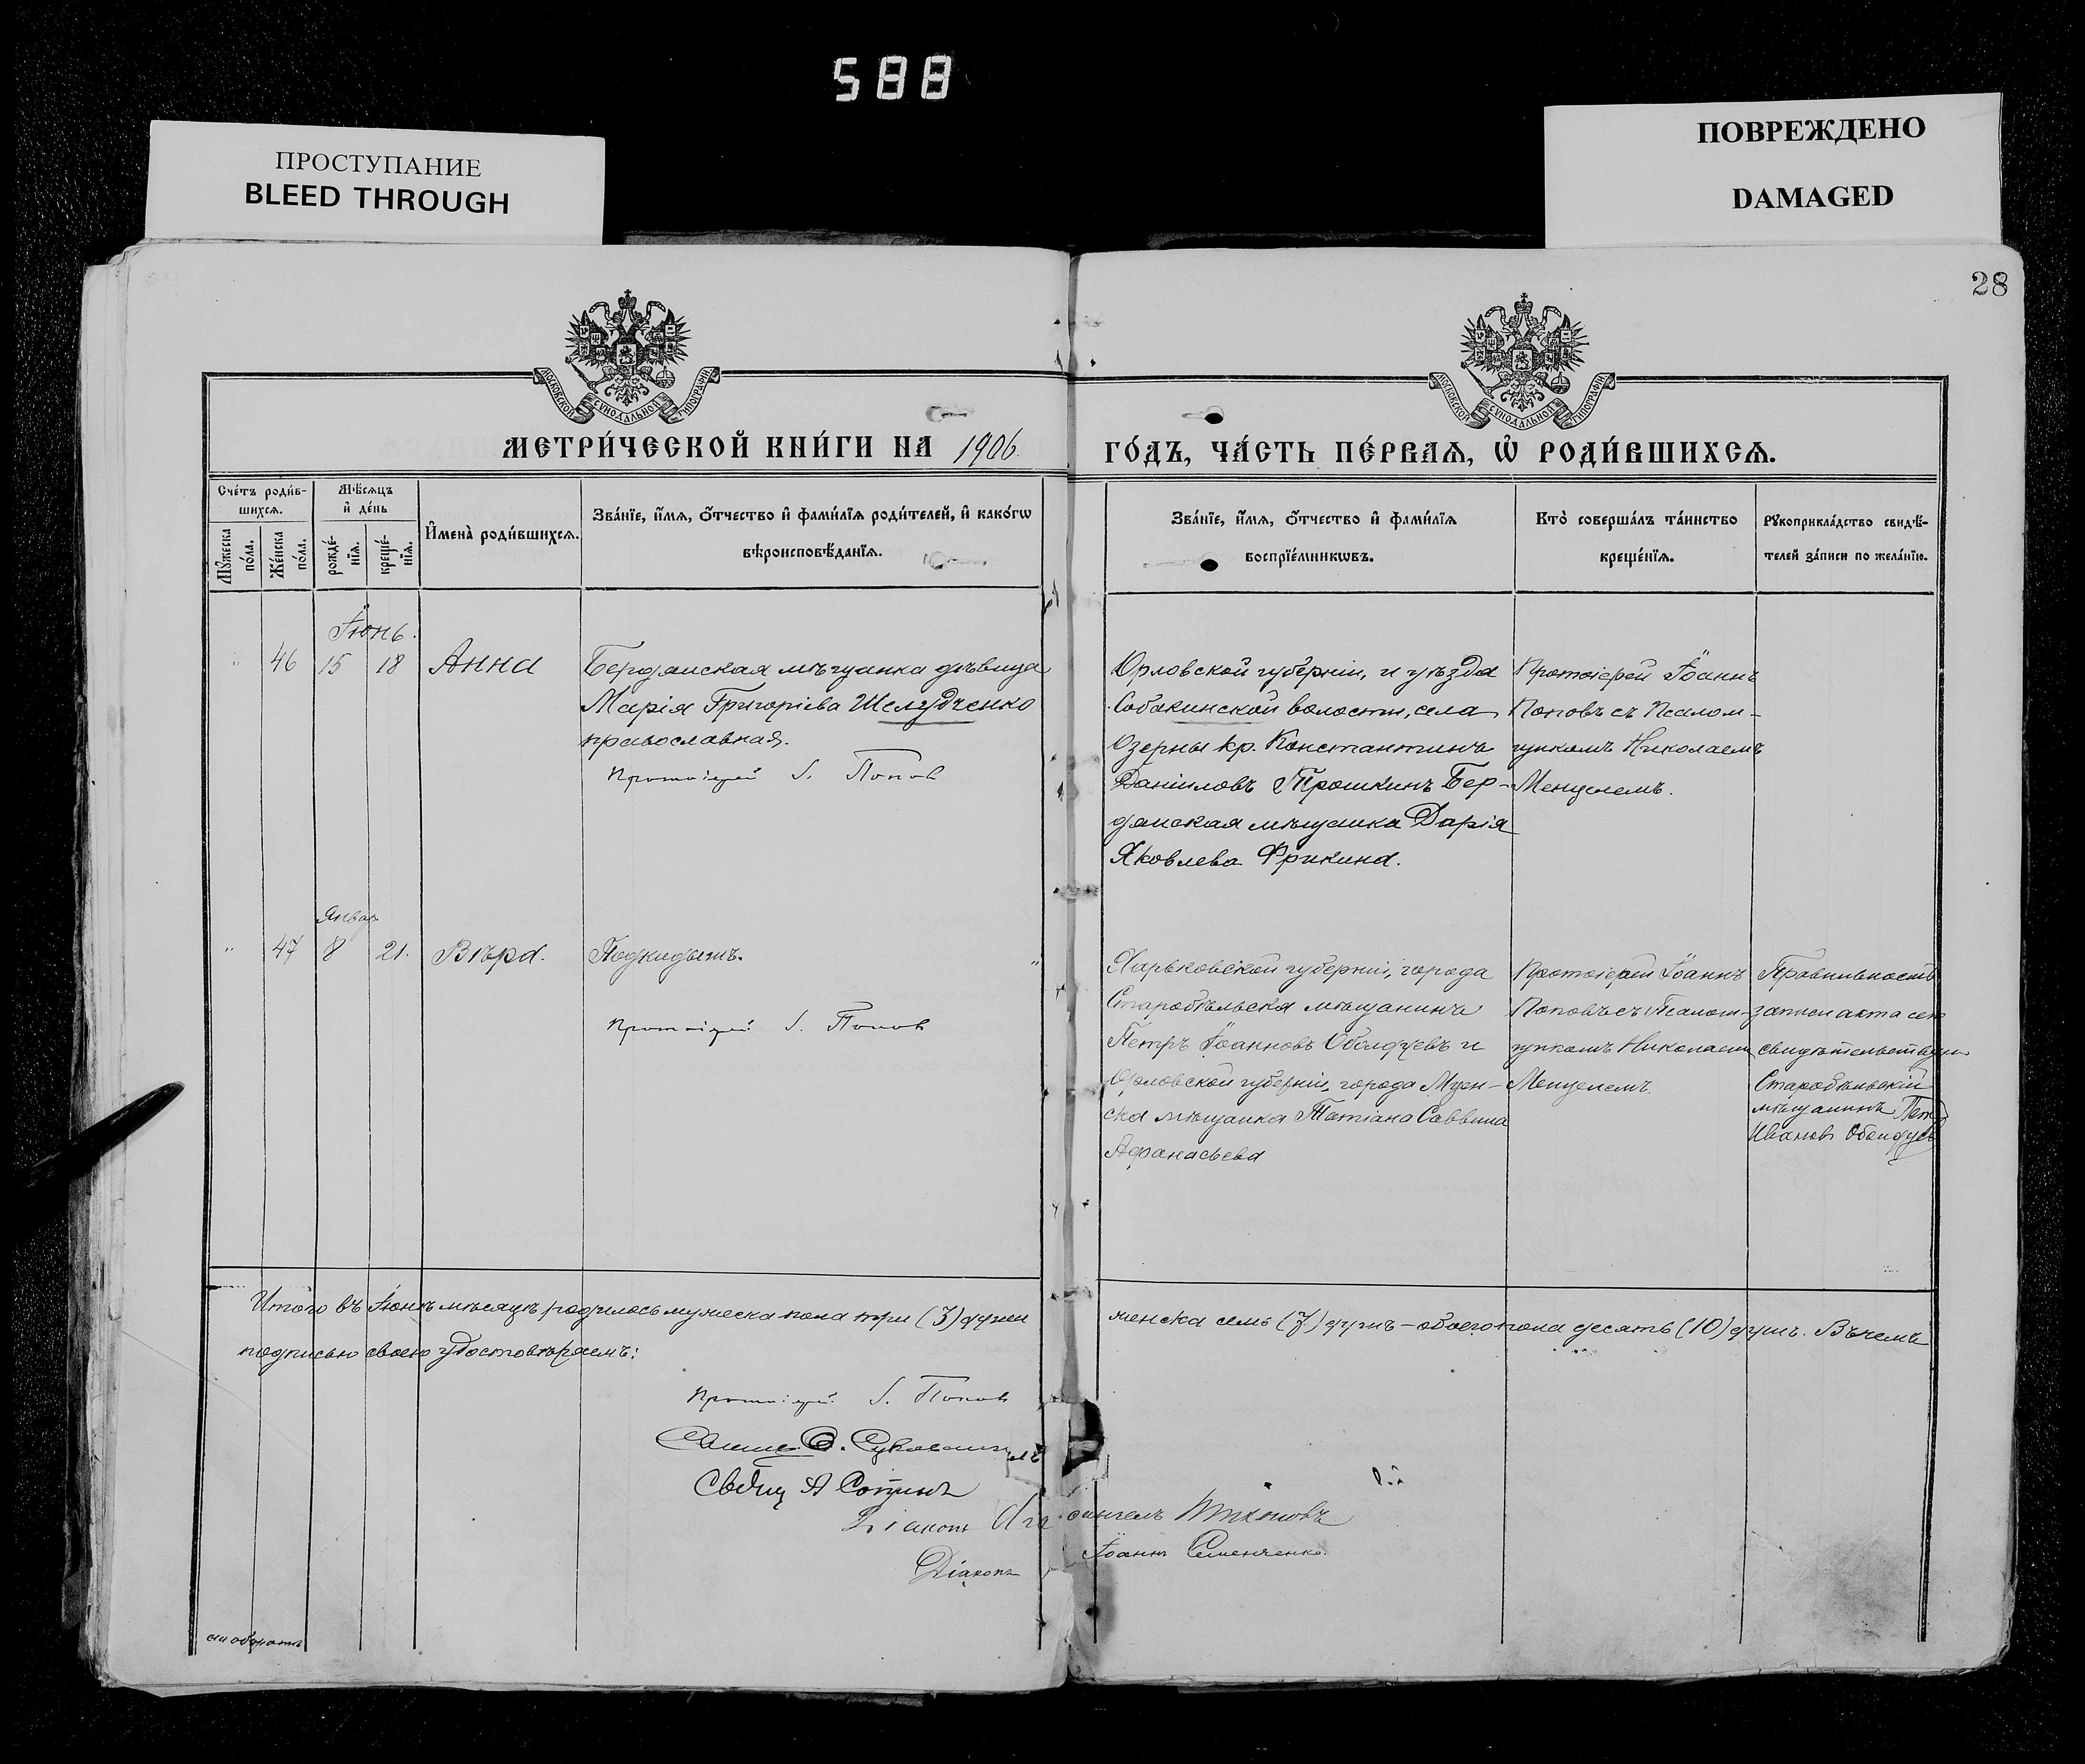 588
ПРОСТУПАНИЕ
BLEED THROUGH
ПОВРЕЖДЕНО
DAMAGED
28
МОСКОВСКОЙ СУНОДАЛЬНОЙ ТИПОГРАФІИ
МОСКОВСКОЙ СУНОДАЛЬНОЙ ТИПОГРАФІИ
МЕТРИ́ЧЕСКОЙ КНИ́ГИ НА 1906 ГО́ДЪ, ЧА́СТЬ ПЕ́РВАѦ, Ѡ҆ РОДИ́ВШИХСѦ.
Сче́тъ роди́в-
шихсѧ.
Мꙋ́жеска по́ла.
Же́нска по́ла.
Мѣ́сѧцъ
и҆ де́нь
рожде́-
нїѧ.
креще́-
нїѧ.
И҆мена̀ роди́вшихсѧ.
Зва́нїе, и҆́мѧ, ѻ҆́тчество и҆ фами́лїѧ роди́телей, и҆ како́гѡ
вѣроисповѣ́данїѧ.
Зва́нїе, и҆́мѧ, ѻ҆́тчество и҆ фами́лїѧ
воспрїе́мникѡвъ.
Кто̀ соверша́лъ та́инство
креще́нїѧ.
Рꙋкоприкла́дство свидѣ́-
телей за́писи по жела́нїю.
Іюнь.
" 46 15 18 Анна
Бердянская мѣщанка дѣвица
Марія Григоріева Шелудченко
православная.
Протоіерей І. Попов
Орловской губерніи, и уѣзда
Собакинской волости, села
Озерны кр. Константинъ
Даніиловъ Трошкинъ Бер-
дянская мѣщанка Дарія
Яковлева Фрикина.
Протоіерей Іоаннъ
Поповъ съ Псалом-
щикомъ Николаемъ
Менцелемъ.
Январ
" 47 8 21. Вѣра.
Подкидышъ. "
Протоіерей І. Попов
Харьковской губерніи, города
Старобѣльска мѣщанинъ
Петръ Іоанновъ Оболдуевъ и
Орловской губерніи, города Мцен-
ска мѣщанка Татіана Саввина
Афанасьева
Протоіерей Іоаннъ
Поповъ съ Псалом-
щикомъ Николаем
Менцелемъ.
Правильность
записи акта сего
свидѣтельствую
Старобѣльскій
мѣщанинъ Петр
Иванов Оболдуев
Итого въ Іюнѣ мѣсяцѣ родилось мужеска пола три (3) души женска семь (7) душъ – обоего пола десять (10) душъ. Въ чемъ
подписью своею удостовѣряемъ:
Протоіерей І. Попов
Свящ А
Діаконъ Тихоновъ
Діаконъ Іоаннъ Семенченко.
на оборотѣ